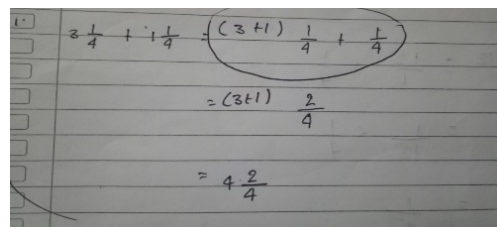 1.
3 1/4 + 1 1/4 = (3+1) 1/4 + 1/4
= (3+1) 2/4
= 4 2/4